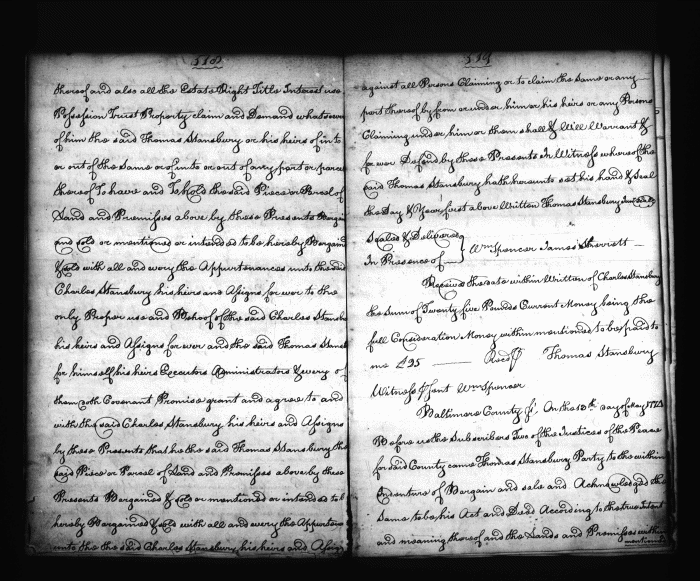 518
thereof and also all the Estate Right Title Interest use
Possession Trust Property claim and Demand whatsoever
of him the said Thomas Stansbury or his heirs of in to
or out of the Same or of in to or out of any part or parcel
thereof To have and To hold the said Piece or Parcel of
Land and Premisses above by these Presents Bargain
and sold or mentioned or intended to be hereby Bargaind
& sold with all and every the Appurtenances unto the said
Charles Stansbury his heirs and Assigns for ever to the
only Proper use and Behoof of the said Charles Stansb
his heirs and Assigns for ever and the said Thomas Stans
for himself his heirs Executors Administrators & every of
them doth Covenant Promise grant and agree to and
with the said Charles Stansbury his heirs and Assigns
by these Presents that he the said Thomas Stansbury the
said Piece or Parcel of Land and Premisses above by these
Presents Bargained & sold or mentioned or intended to b
hereby Bargained & sold with all and every the Appurten
unto the the said Charles Stansbury his heirs and Assign
519
against all Persons Claiming or to claim the same or any
part thereof by from or under him or his heirs or any Persons
Claiming under him or them shall & Will Warrant &
for ever Defend by these Presents In Witness whereof the
said Thomas Stansbury hath hereunto set his hand & Seal
the Day & Year first above Written Thomas Stansbury
Sealed & Delivered
In Presence of } Wm Spencer James Sherrett
Received the date within Written of Charles Stansbury
the Sum of Twenty five Pounds Current Money being the
full Consideration Money within mentioned to be paid to
me £25 Recd Thomas Stansbury
Witness Wm Spencer
Baltimore County On the 13th Day of May
Before us the Subscribers Two of the Justices of the Peace
for said County came Thomas Stansbury Party to the within
Indenture of Bargain and sale and Acknowledged the
Same to be his Act and Deed According to the true intent
and meaning thereof and the Lands and Premisses within
mentioned